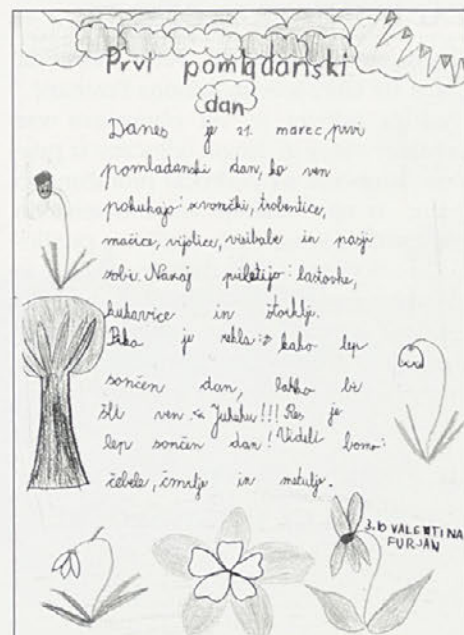 Prvi pomladanski
dan
Danes je 21. marec, prvi
pomladanski dan, ko ven
pokukajo: zvončki, trobentice,
mačice, vijolice, visibabe in pasji
zobi. Nazaj priletijo: lastovke,
kukavice in štorklje.
Pika je rekla: » kako lep
sončen dan, lahko bi
šli ven. « Juhuhu!!! Res je
lep sončen dan! Videli bomo:
čebele, čmrlje in metulje.
3.b VALENTINA
FURJAN